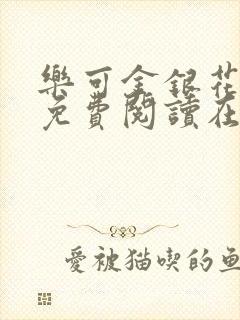 樂可金銀花
免費閱讀在
愛被猫喫的魚